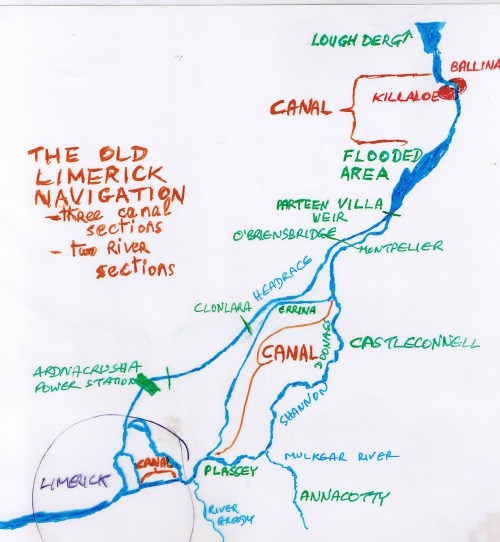 LOUGH DERG↑
BALLINA
KILLALOE
CANAL
THE OLD
LIMERICK
NAVIGATION
- three canal
sections
- two River
sections
FLOODED
AREA
PARTEEN VILLA
WEIR
O'BRIENSBRIDGE
MONTPELIER
HEADRACE
CLONLARA
ERRINA
DOONASS
CANAL
CASTLECONNELL
ARDNACRUSHA
POWER STATION
SHANNON
PLASSEY
MULKEAR RIVER
CANAL
LIMERICK
ANNACOTTY
RIVER
GROODY